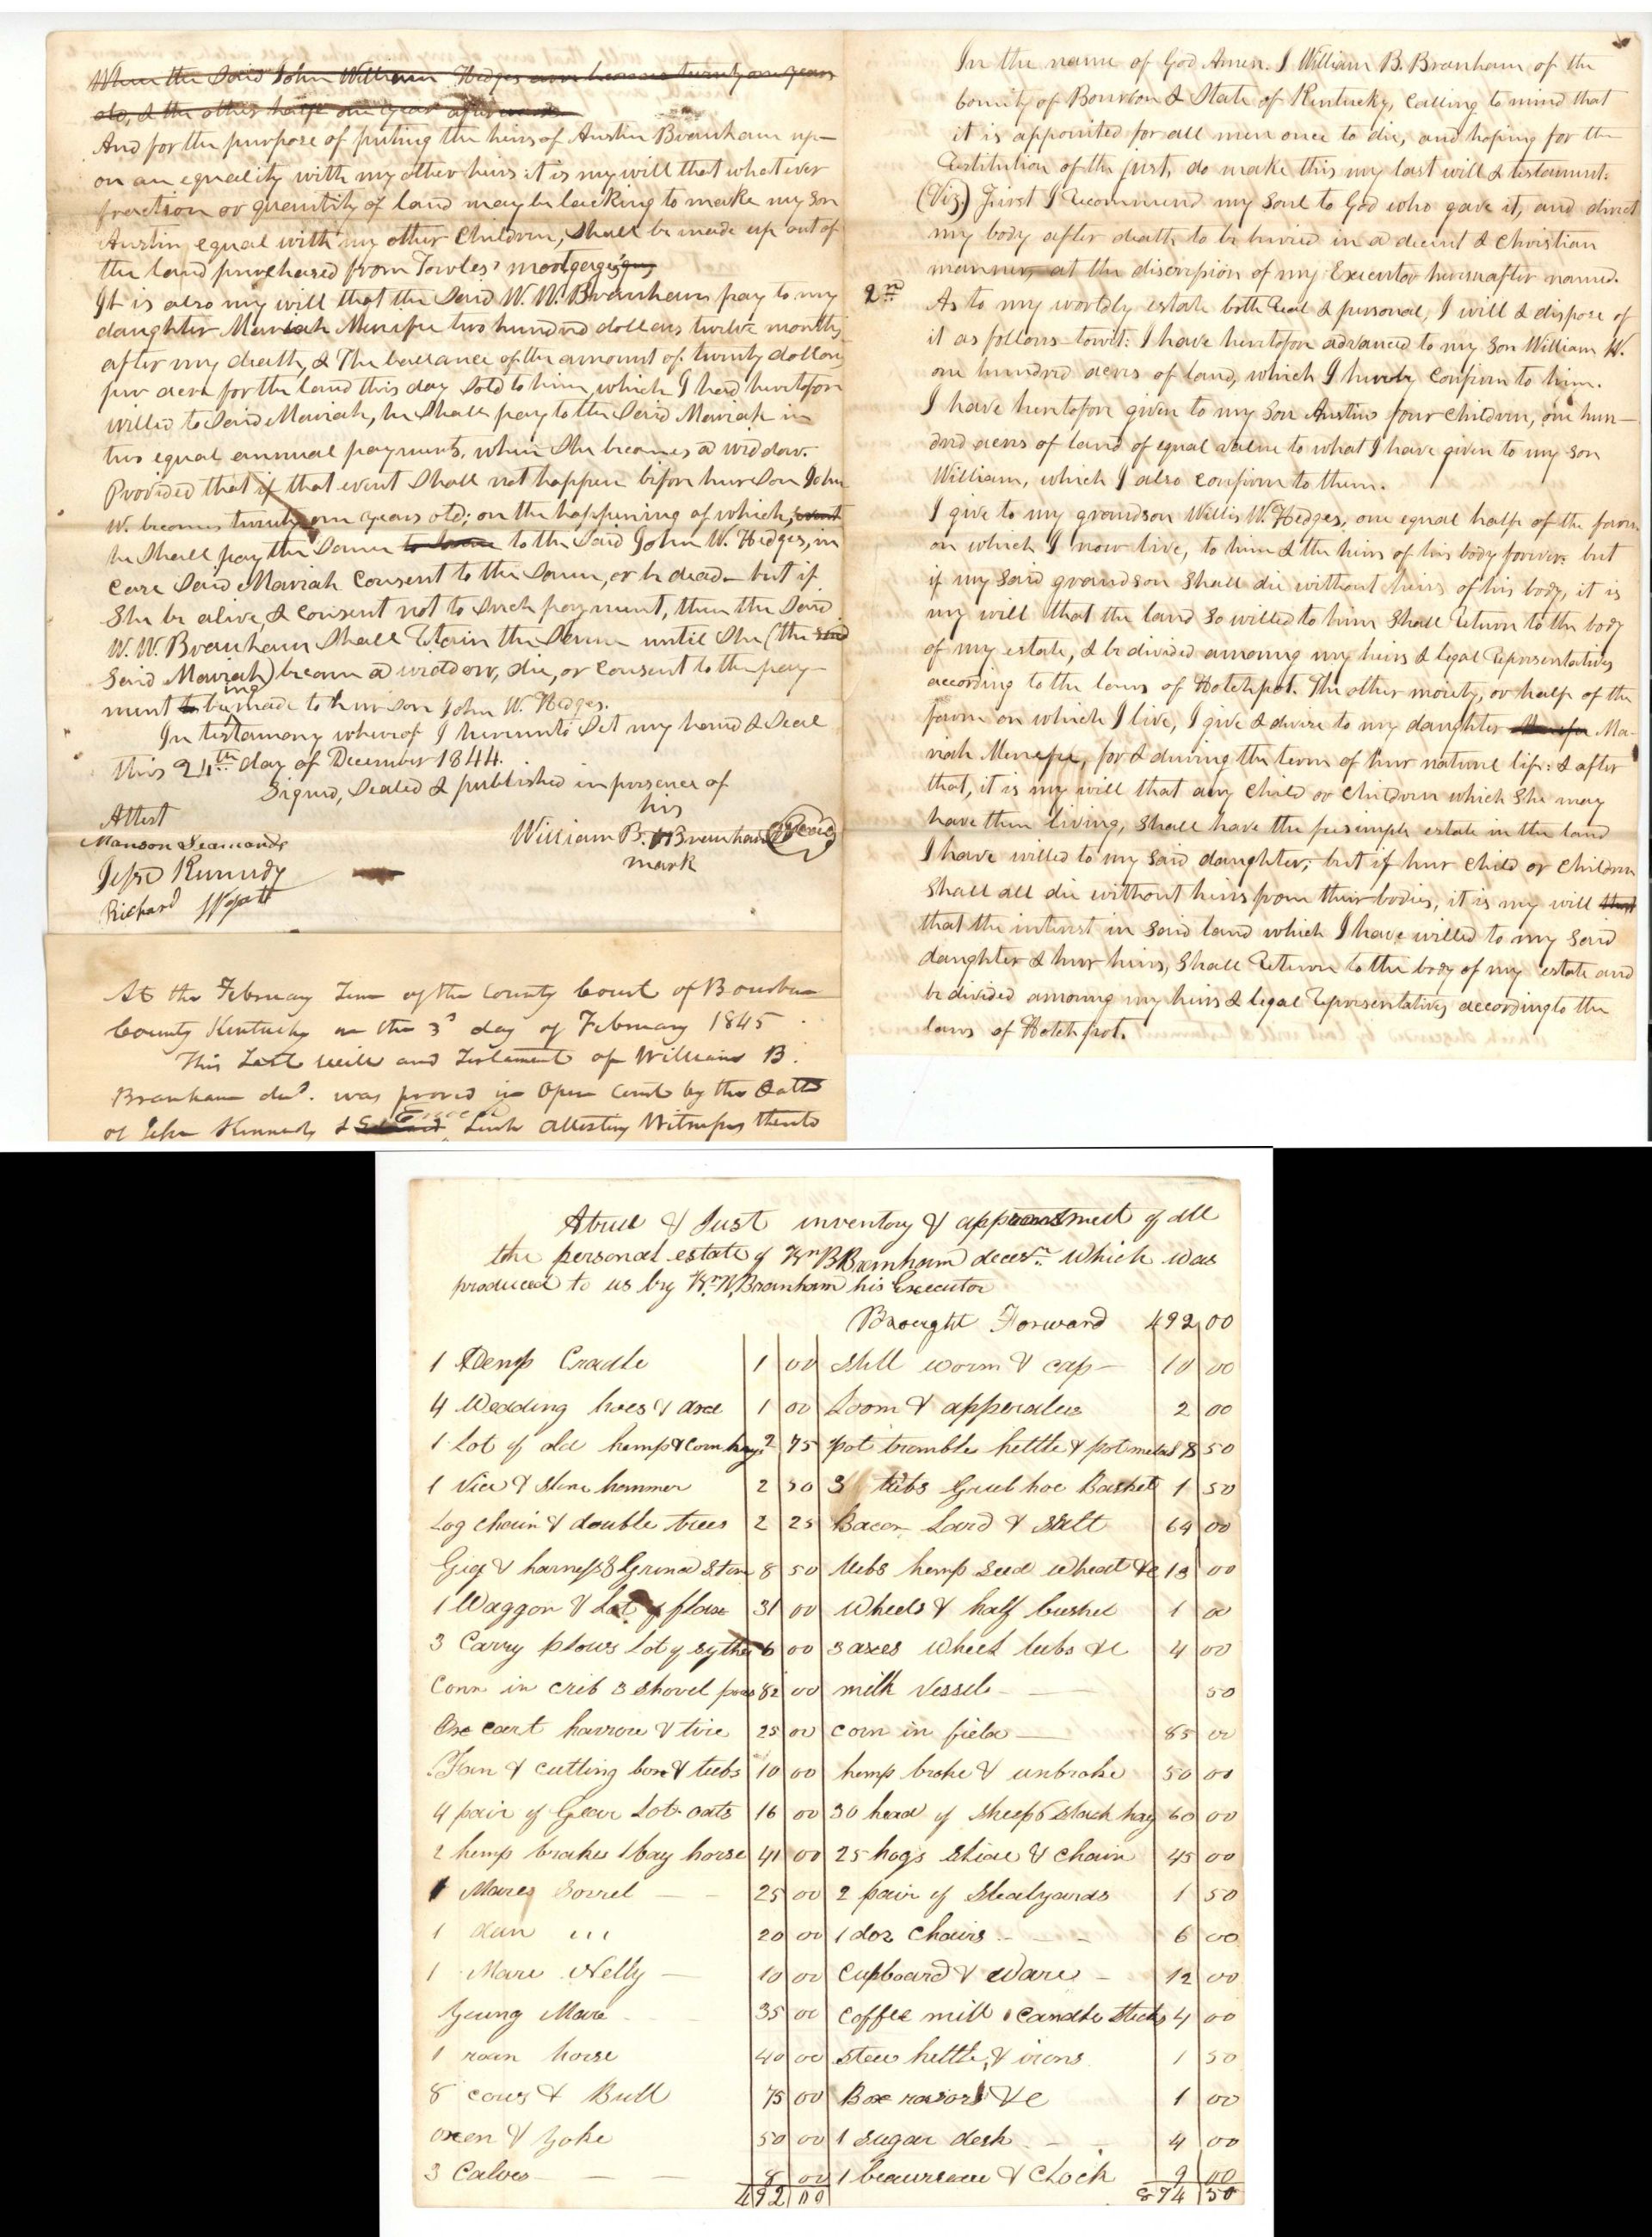 When the Said John William Hedges become twenty one years
old, & the other half one year afterwards
And for the purpose of puting the heirs of Austin Branham up-
on an equality with my other heirs it is my will that whatever
fraction or quantity of land may be lacking to make my son
Austin equal with my other Children, Shall be made up out of
the land purchased from Towles'
It is also my will that the Said W. W. Branham pay to my
daughter Mariah Menifee two hundred dollars twelve months
after my death, & The ballance of the amount of twenty dollars
per acre for the land this day Sold to him, which I had heretofore
willed to Said Mariah, he Shall pay to the Said Mariah in
two equal annual payments, when She becomes a widdow.
Provided that if that event Shall not happen before her Son John
W. becomes twenty one years old; on the happening of which, event
he Shall pay the Same to the Said John W. Hedges, in
case Said Mariah Consent to the Same, or be dead - but if
She be alive, & consent not to Such payment, then the Said
W. W. Branham Shall Retain the Same until She (the said
Said Mariah) became a widdow, die, or consent to the pay-
ment being made to her son John W. Hedges.
In testamony whereof I hereunto Set my hand & Seal
this 24th day of December 1844.
Signed, Sealed & published in presence of
his
Attest
William B. Branham Seal
mark
Manson Seamands
Jesse Kennedy
Richard Wyatt
At the February Term of the County Court of Bourbon
County Kentucky on the 3d day of February 1845
This Last will and Testament of William B.
Branham decd. was proved in Open Court by the Oaths
of Jesse Kennedy & attesting Witnesses thereto
In the name of God Amen. I William B. Branham of the
County of Bourbon & State of Kentucky, Calling to mind that
it is appointed for all men once to die, and hoping for the
Restitution of the just, do make this my last will & testament:
(Viz) First I Recommend my Soul to God who gave it, and direct
my body after death to be buried in a decent & Christian
manner, at the discression of my Executor hereafter named.
2nd As to my worldly estate both Real & personal, I will & dispose of
it as follows towit: I have heretofore advanced to my Son William W.
one hundred acres of land, which I hereby confirm to him.
I have heretofore given to my Son Austins four Children, one hun-
dred acres of land of equal value to what I have given to my son
William, which I also confirm to them.
I give to my grandson Willis W. Hedges, one equal half of the farm
on which I now live, to him & the heirs of his body forever: but
if my Said grandson Shall die without heirs of his body, it is
my will that the land So willed to him Shall Return to the body
of my estate, & be divided among my heirs & legal Representatives
according to the laws of Hotchpot. The other moiety, or half of the
farm on which I live, I give & devise to my daughter Ma-
riah Menefee, for & during the term of her natural life: & after
that, it is my will that any Child or Children which She may
have then living, Shall have the feesimple estate in the land
I have willed to my Said daughter; but if her Child or Children
Shall all die without heirs from their bodies, it is my will that
that the interest in Said land which I have willed to my Said
daughter & her heirs, Shall Return to the body of my estate and
be divided among my heirs & legal Representatives according to the
laws of Hotchpot.
A true & Just inventory & of all
the personal estate of Wm B Branham decesd which was
produced to us by Wm W. Branham his Executor
Brought Forward 492 00
1 Hemp Cradle 1 00 Still worm & cap 10 00
4 Wedding hoes & axe 1 00 Loom & apperatus 2 00
1 Lot of old hemp & corn 2 75 pot tramble kettle & pot metal 8 50
1 Vice & Stone hammer 2 50 3 tubs Grub hoe Basket 1 50
Log chain & double trees 2 25 Bacon Lard & Salt 64 00
Gig & harness & Grind Stone 8 50 tubs hemp seed wheat &c 13 00
1 Waggon & Lot of flax 31 00 Wheels & half bushel 1 00
3 Carry plows Lot of sythes 6 00 3 axes wheel tubs &c 4 00
Corn in crib 3 shovel 82 00 milk Vessels 50
Ox cart harrow & tire 25 00 corn in field 85 00
Fan & cutting box & tubs 10 00 hemp broke & unbroke 50 00
4 pair of Gear Lot oats 16 00 30 head of Sheep Stack hay 60 00
2 hemp brakes 1 bay horse 41 00 25 hogs & chain 45 00
1 Mares Sorrel 25 00 2 pair of Stealyards 1 50
1 dun ,,, 20 00 1 doz Chairs 6 00
1 Mare Nelly 10 00 Cupboard & Ware 12 00
Young Mare 35 00 Coffee mill Candle Sticks 4 00
1 roan horse 40 00 Stew kettle, & irons 1 50
8 cows & Bull 75 00 Box razors &c 1 00
oxen & Yoke 50 00 1 Sugar desk 4 00
3 Calves 8 00 1 beaureau & Clock 9 00
492 00 874 50